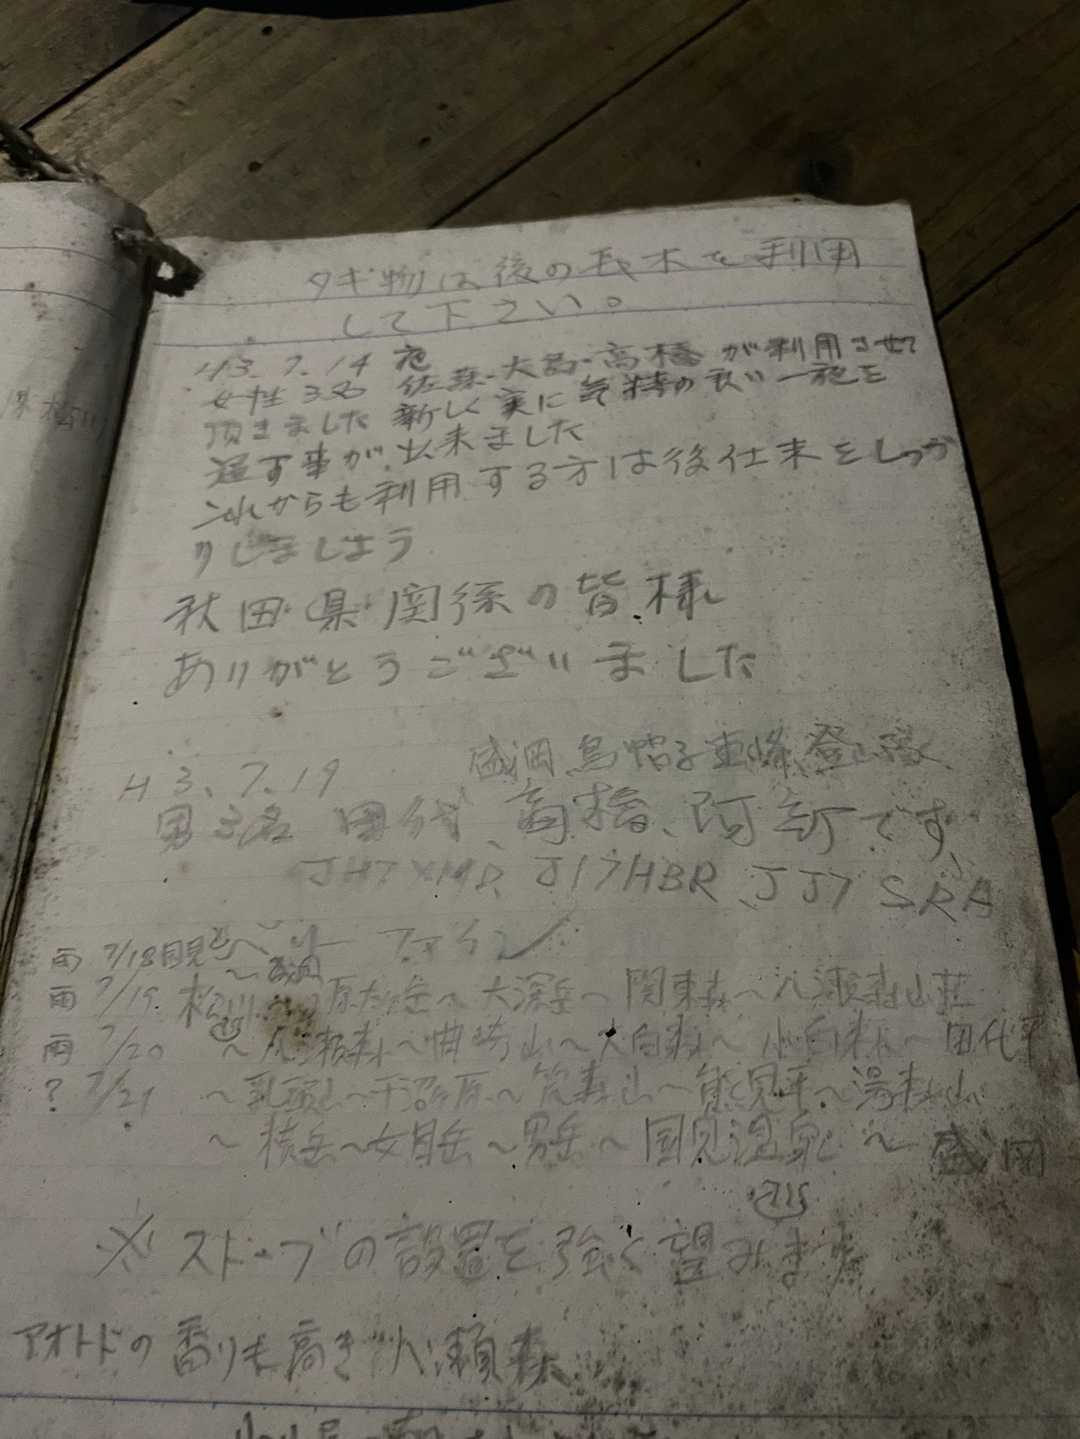 タキ物は後の丸木を利用
して下さい。
H3.7.14 夜
女性3名 佐藤・大島・高橋が利用させて
頂きました 新しく実に気持の良い一夜を
過す事が出来ました
これからも利用する方は後仕末をしっか
りしましょう
秋田県関係の皆様
ありがとうございました
盛岡烏帽子亜峰登山隊
H3.7.19
男3名 田代、高橋、阿部です
J17HBR、JJ7SRA
雨 7/18
雨 7/19 松川〜大深岳〜関東森〜八瀬森山荘
雨 7/20 〜八瀬森〜曲崎山〜大白森〜小白森〜田代平
? 7/21 〜乳頭山〜千沼ヶ原〜笊森山〜熊見平〜湯森山
〜横岳〜女目岳〜男岳〜国見温泉〜盛岡
※ストーブの設置を強く望みます
アオトドの香りも高き八瀬森